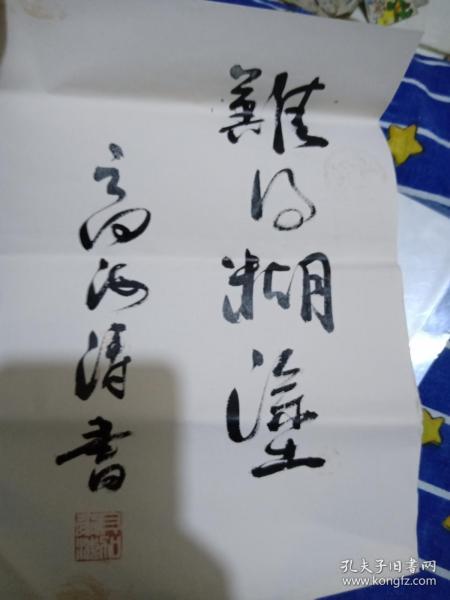 難得糊塗
高海濤書
孔夫子旧书网
www.kongfz.com